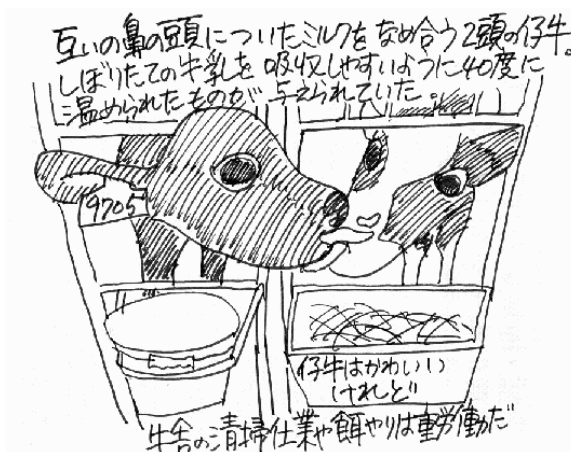 互いの鼻の頭についたミルクをなめ合う2頭の仔牛。
しぼりたての牛乳を吸収しやすいように40度に
温められたものが与えられていた。
9705
仔牛はかわいい
けれど
牛舎の清掃仕業や餌やりは重労働だ